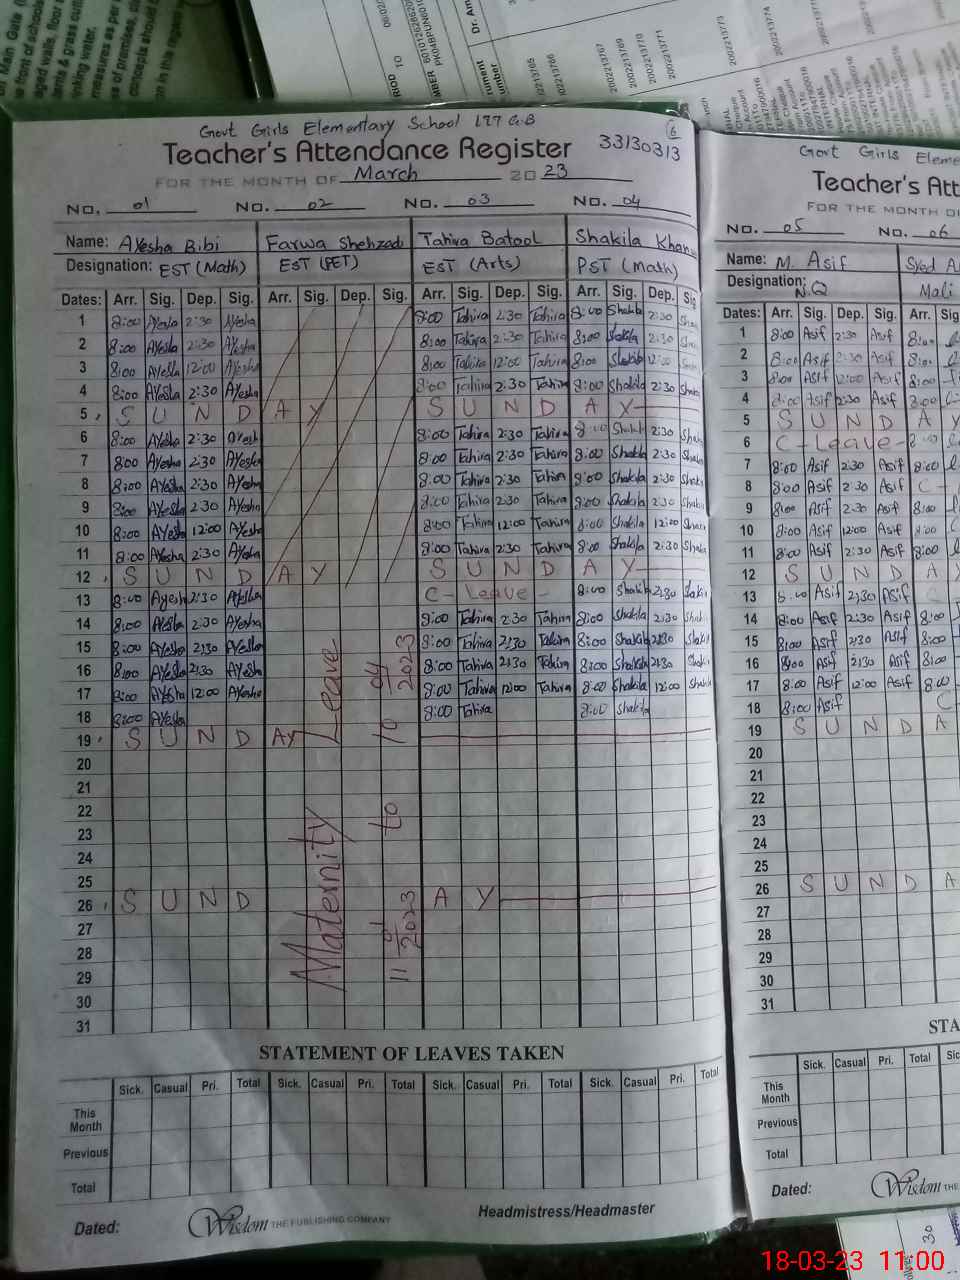 Govt Girls Elementary School 177 GB
6
Teacher's Attendance Register 33130313
FOR THE MONTH OF March 20 23
NO. 01 NO. 02 NO. 03 NO. 04
Name: Ayesha Bibi Farwa Shehzadi Tahira Batool Shakila
Designation: EST (Math) EST (PET) EST (Arts) PST (Math)
Dates: Arr. Sig. Dep. Sig. Arr. Sig. Dep. Sig. Arr. Sig. Dep. Sig. Arr. Sig. Dep. Sig
1 8:00 Ayesha 2:30 Ayesha 8:00 Tahira 2:30 Tahira 8:00 Shakila 2:30
2 8:00 Ayesha 2:30 Ayesha 8:00 Tahira 2:30 Tahira 8:00 Shakila 2:30
3 8:00 Ayesha 12:00 Ayesha 8:00 Tahira 12:00 Tahira 8:00 Shakila 12:00
4 8:00 Ayesha 2:30 Ayesha 8:00 Tahira 2:30 Tahira 8:00 Shakila 2:30
5 S U N D A Y S U N D A Y
6 8:00 Ayesha 2:30 Ayesha 8:00 Tahira 2:30 Tahira 8:00 Shakila 2:30
7 8:00 Ayesha 2:30 Ayesha 8:00 Tahira 2:30 Tahira 8:00 Shakila 2:30
8 8:00 Ayesha 2:30 Ayesha 8:00 Tahira 2:30 Tahira 8:00 Shakila 2:30
9 8:00 Ayesha 2:30 Ayesha 8:00 Tahira 2:30 Tahira 8:00 Shakila 2:30
10 8:00 Ayesha 12:00 Ayesha 8:00 Tahira 12:00 Tahira 8:00 Shakila 12:00
11 8:00 Ayesha 2:30 Ayesha 8:00 Tahira 2:30 Tahira 8:00 Shakila 2:30
12 S U N D A Y S U N D A Y
13 8:00 Ayesha 2:30 Ayesha C - Leave - 8:00 Shakila 2:30
14 8:00 Ayesha 2:30 Ayesha 8:00 Tahira 2:30 Tahira 8:00 Shakila 2:30
15 8:00 Ayesha 2:30 Ayesha 8:00 Tahira 2:30 Tahira 8:00 Shakila 2:30
16 8:00 Ayesha 2:30 Ayesha 8:00 Tahira 2:30 Tahira 8:00 Shakila 2:30
17 8:00 Ayesha 12:00 Ayesha 8:00 Tahira 12:00 Tahira 8:00 Shakila 12:00
18 8:00 Ayesha 8:00 Tahira 8:00 Shakila
19 S U N D AY
20
21
22
23
24
25
26 S U N D A Y
27
28
29
30
31
Maternity Leave
11 01 2023 to 10 04 2023
STATEMENT OF LEAVES TAKEN
Sick. Casual Pri. Total Sick. Casual Pri. Total Sick. Casual Pri. Total Sick. Casual Pri. Total
This Month
Previous
Total
Dated: Wisdom THE PUBLISHING COMPANY Headmistress/Headmaster
Govt Girls
Teacher's
FOR THE MONTH
NO. 05 NO. 06
Name: M. Asif Syed
Designation: N.Q Mali
Dates: Arr. Sig. Dep. Sig. Arr.
1 8:00 Asif 2:30 Asif 8:00
2 8:00 Asif 2:30 Asif 8:00
3 8:00 Asif 12:00 Asif 8:00
4 8:00 Asif 2:30 Asif 8:00
5 S U N D A Y
6 C - Leave - 8:00
7 8:00 Asif 2:30 Asif 8:00
8 8:00 Asif 2:30 Asif C
9 8:00 Asif 2:30 Asif 8:00
10 8:00 Asif 12:00 Asif 8:00
11 8:00 Asif 2:30 Asif 8:00
12 S U N D A Y
13 8:00 Asif 2:30 Asif
14 8:00 Asif 2:30 Asif 8:00
15 8:00 Asif 2:30 Asif 8:00
16 8:00 Asif 2:30 Asif 8:00
17 8:00 Asif 12:00 Asif 8:00
18 8:00 Asif C
19 S U N D A
20
21
22
23
24
25
26 S U N D A
27
28
29
30
31
Sick. Casual Pri. Total
This Month
Previous
Total
Dated: Wisdom THE
30
18-03-23 11:00